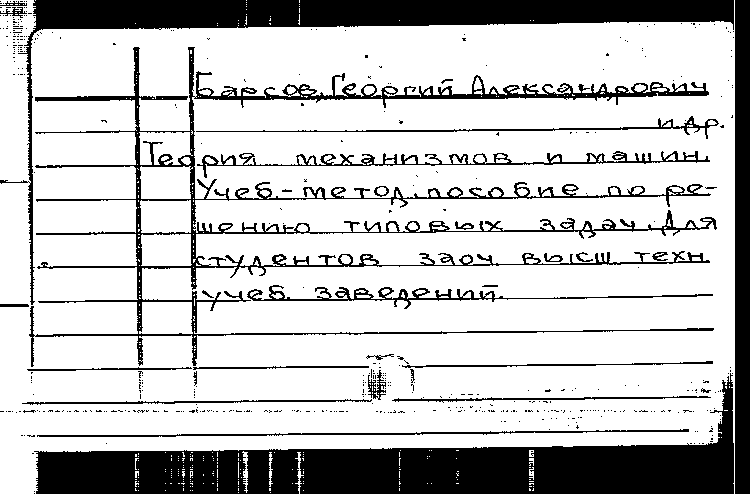 Барсов, Георгий Александрович
и др.
Теория механизмов и машин.
Учеб.-метод. пособие по ре-
шению типовых задач. Для
студентов заоч. высш. техн.
учеб. заведений.